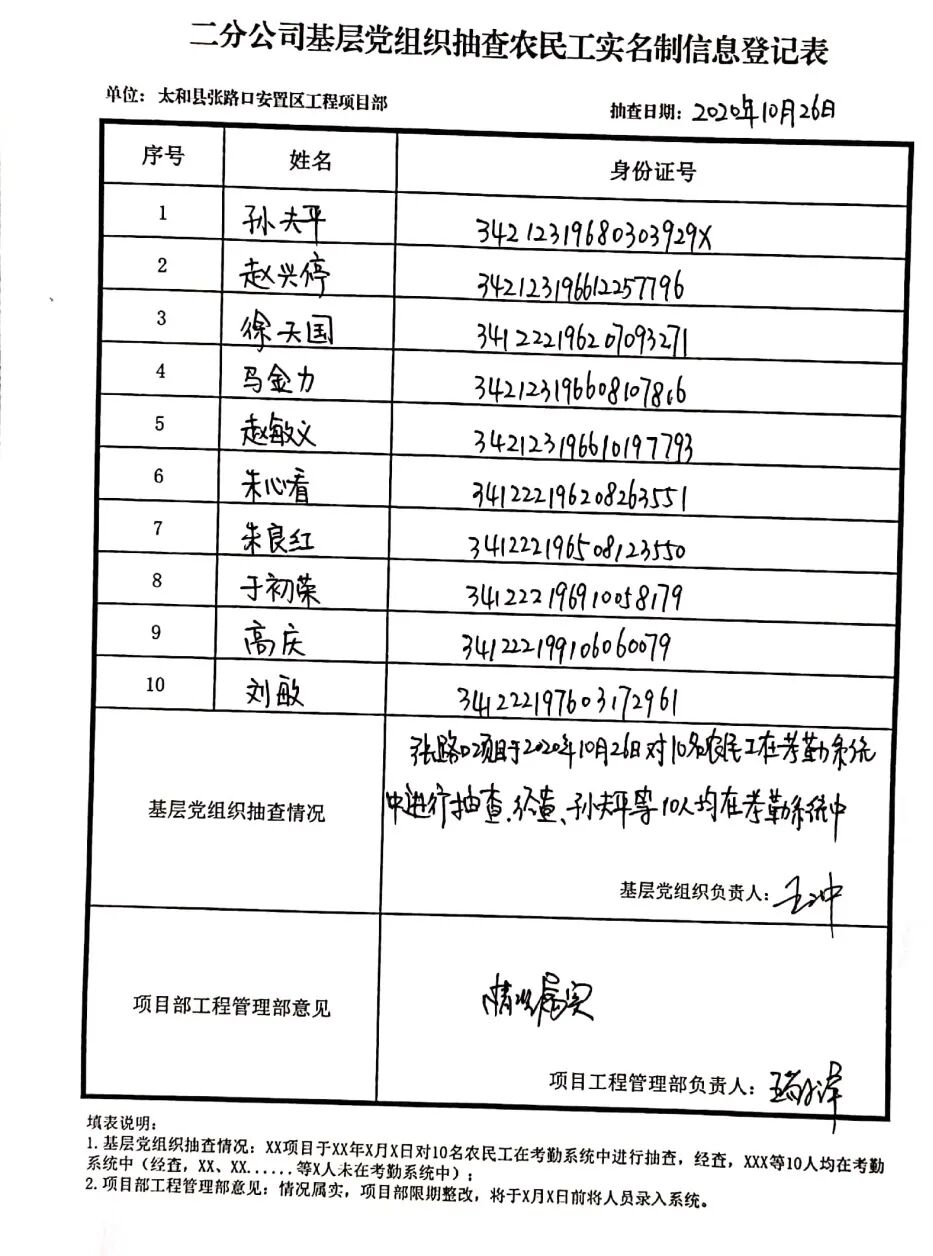 二分公司基层党组织抽查农民工实名制信息登记表
单位：太和县张路口安置区工程项目部 抽查日期：2020年10月26日
序号 姓名 身份证号
1 孙夫平 34212319680303929X
2 赵兴停 342123196612257796
3 徐天国 341222196207093271
4 马金力 342123196608107816
5 赵敏义 342123196610197793
6 朱心看 341222196208263551
7 朱良红 341222196508123550
8 于初荣 341222196910058179
9 高庆 341222199106060079
10 刘敏 341222197603172961
张路口项目于2020年10月26日对10名农民工在考勤系统
基层党组织抽查情况 中进行抽查、经查、孙夫平等10人均在考勤系统中
基层党组织负责人：王冲
项目部工程管理部意见 情况属实
项目工程管理部负责人：
填表说明：
1.基层党组织抽查情况：XX项目于XX年X月X日对10名农民工在考勤系统中进行抽查，经查，XXX等10人均在考勤
系统中（经查，XX、XX......等X人未在考勤系统中）；
2.项目部工程管理部意见：情况属实，项目部限期整改，将于X月X日前将人员录入系统。